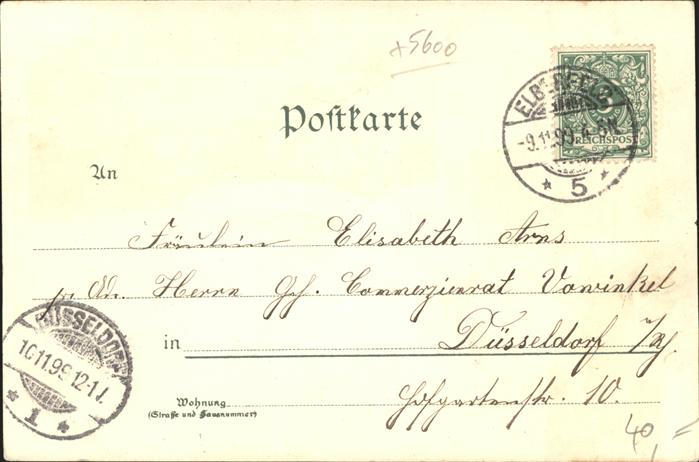 +5600
Postkarte
ELBERFELD
-9.11.99.4-5N.
* 5 *
5
REICHSPOST
An
Fräulein Elisabeth Arns
pr. Ad. Herrn Geh. Commerzienrat Vowinkel
in Düsseldorf
Wohnung Hofgartenstr. 10.
(Straße und Hausnummer)
DÜSSELDORF
10.11.99.12-1
* 1 *
40,=